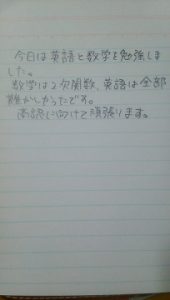 今日は英語と数学を勉強しま
した。
数学は2次関数、英語は全部
難かしかったです。
高認に向けて頑張ります。